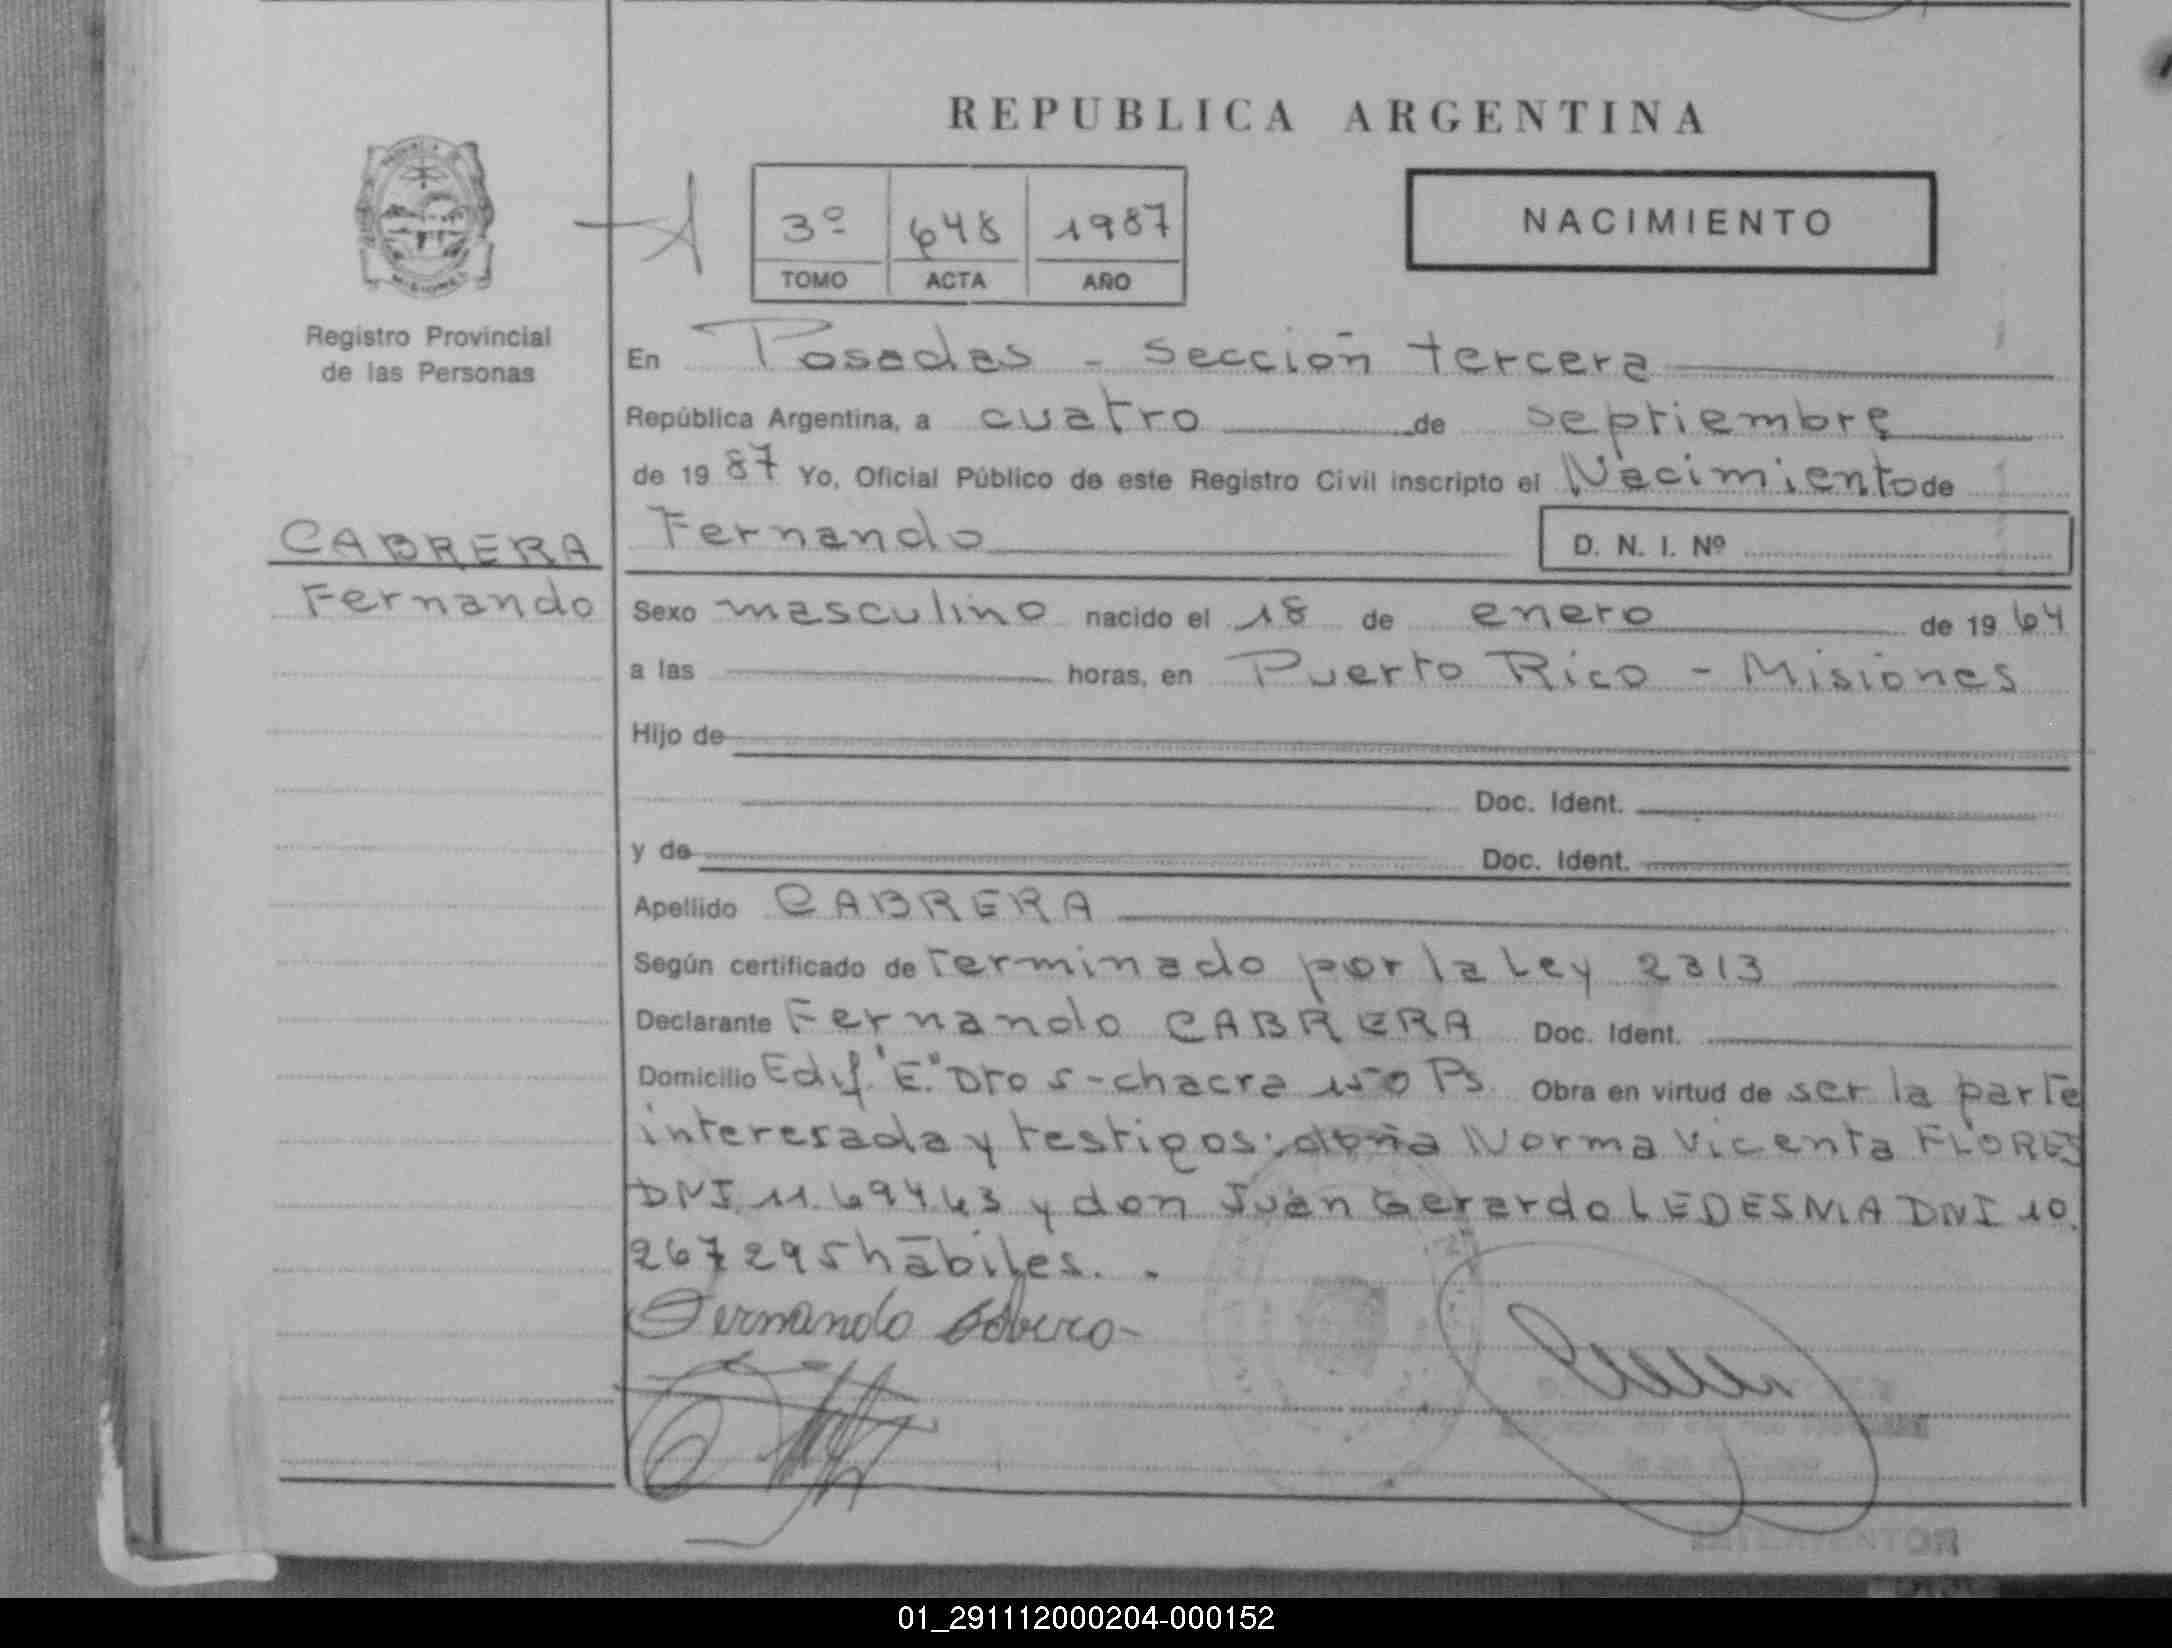 REPUBLICA ARGENTINA
3º 648 1987
TOMO ACTA AÑO
NACIMIENTO
Registro Provincial
de las Personas
CABRERA
Fernando
En Posadas - Sección tercera
República Argentina, a cuatro de septiembre
de 1987 Yo, Oficial Público de este Registro Civil inscripto el Nacimiento de
Fernando D. N. I. Nº
Sexo masculino nacido el 18 de enero de 1964
a las horas, en Puerto Rico - Misiones
Hijo de
Doc. Ident.
y de Doc. Ident.
Apellido CABRERA
Según certificado de terminado por la Ley 2313
Declarante Fernando CABRERA Doc. Ident.
Domicilio Edif. "E." Dto 5-chacra 150 Ps. Obra en virtud de ser la parte
interesada y testigos: doña Norma Vicenta FLORES
DNI 11.694.63 y don Juan Gerardo LEDESMA DNI 10.
267295 hábiles. -
Fernando
INTERVENTOR
01_291112000204-000152